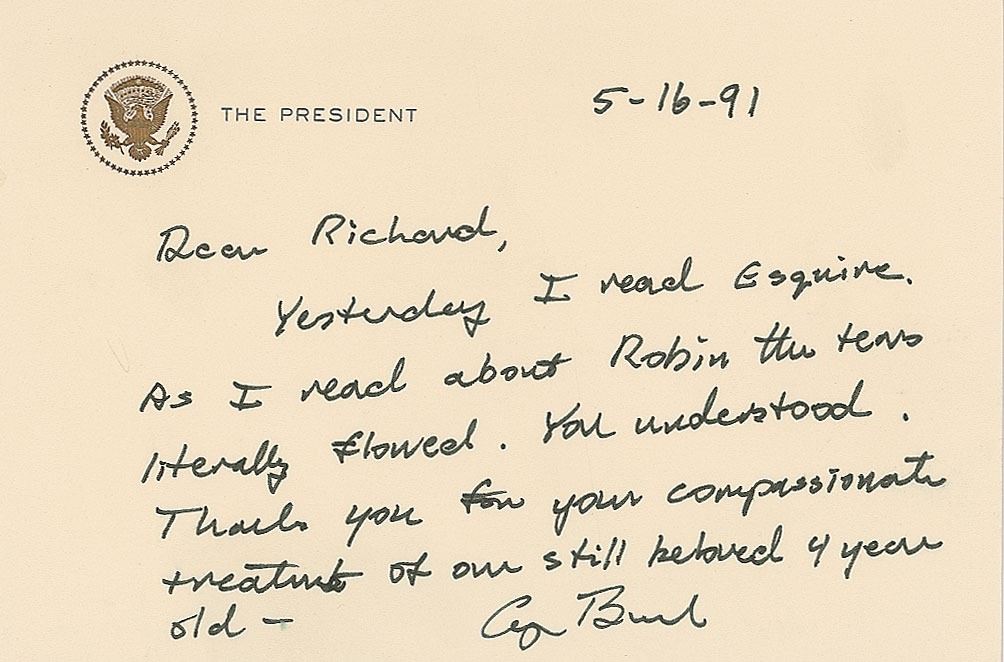 THE PRESIDENT
5-16-91
Dear Richard,
Yesterday I read Esquire.
As I read about Robin the tears
literally flowed. You understood.
Thank you for your compassionate
treatment of our still beloved 4 year
old - 
G Bush